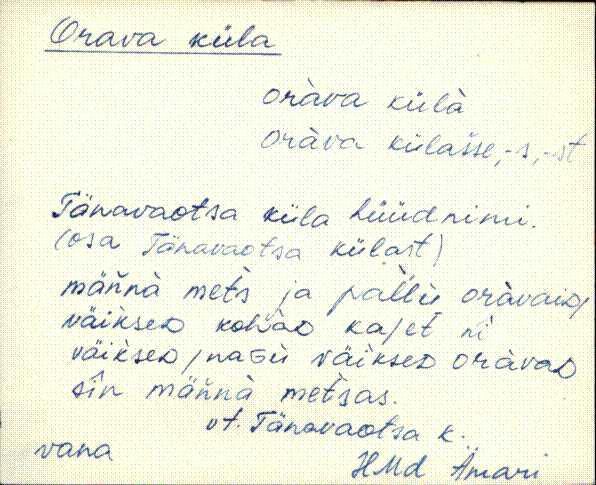 Orava küla
oràva külà
oràva külašše, -s, -st
Tänavaotsa küla hüüdnimi.
(osa Tänavaotsa külast)
män̆nà mets̆ ja pal̆l̆u oràvaiD/
väiksed kohàD ka/et ni
väikseD/naGu väikseD oràvaD
sîn män̆nà metsas.
vt. Tänavaotsa k.
vana
HMd Ämari